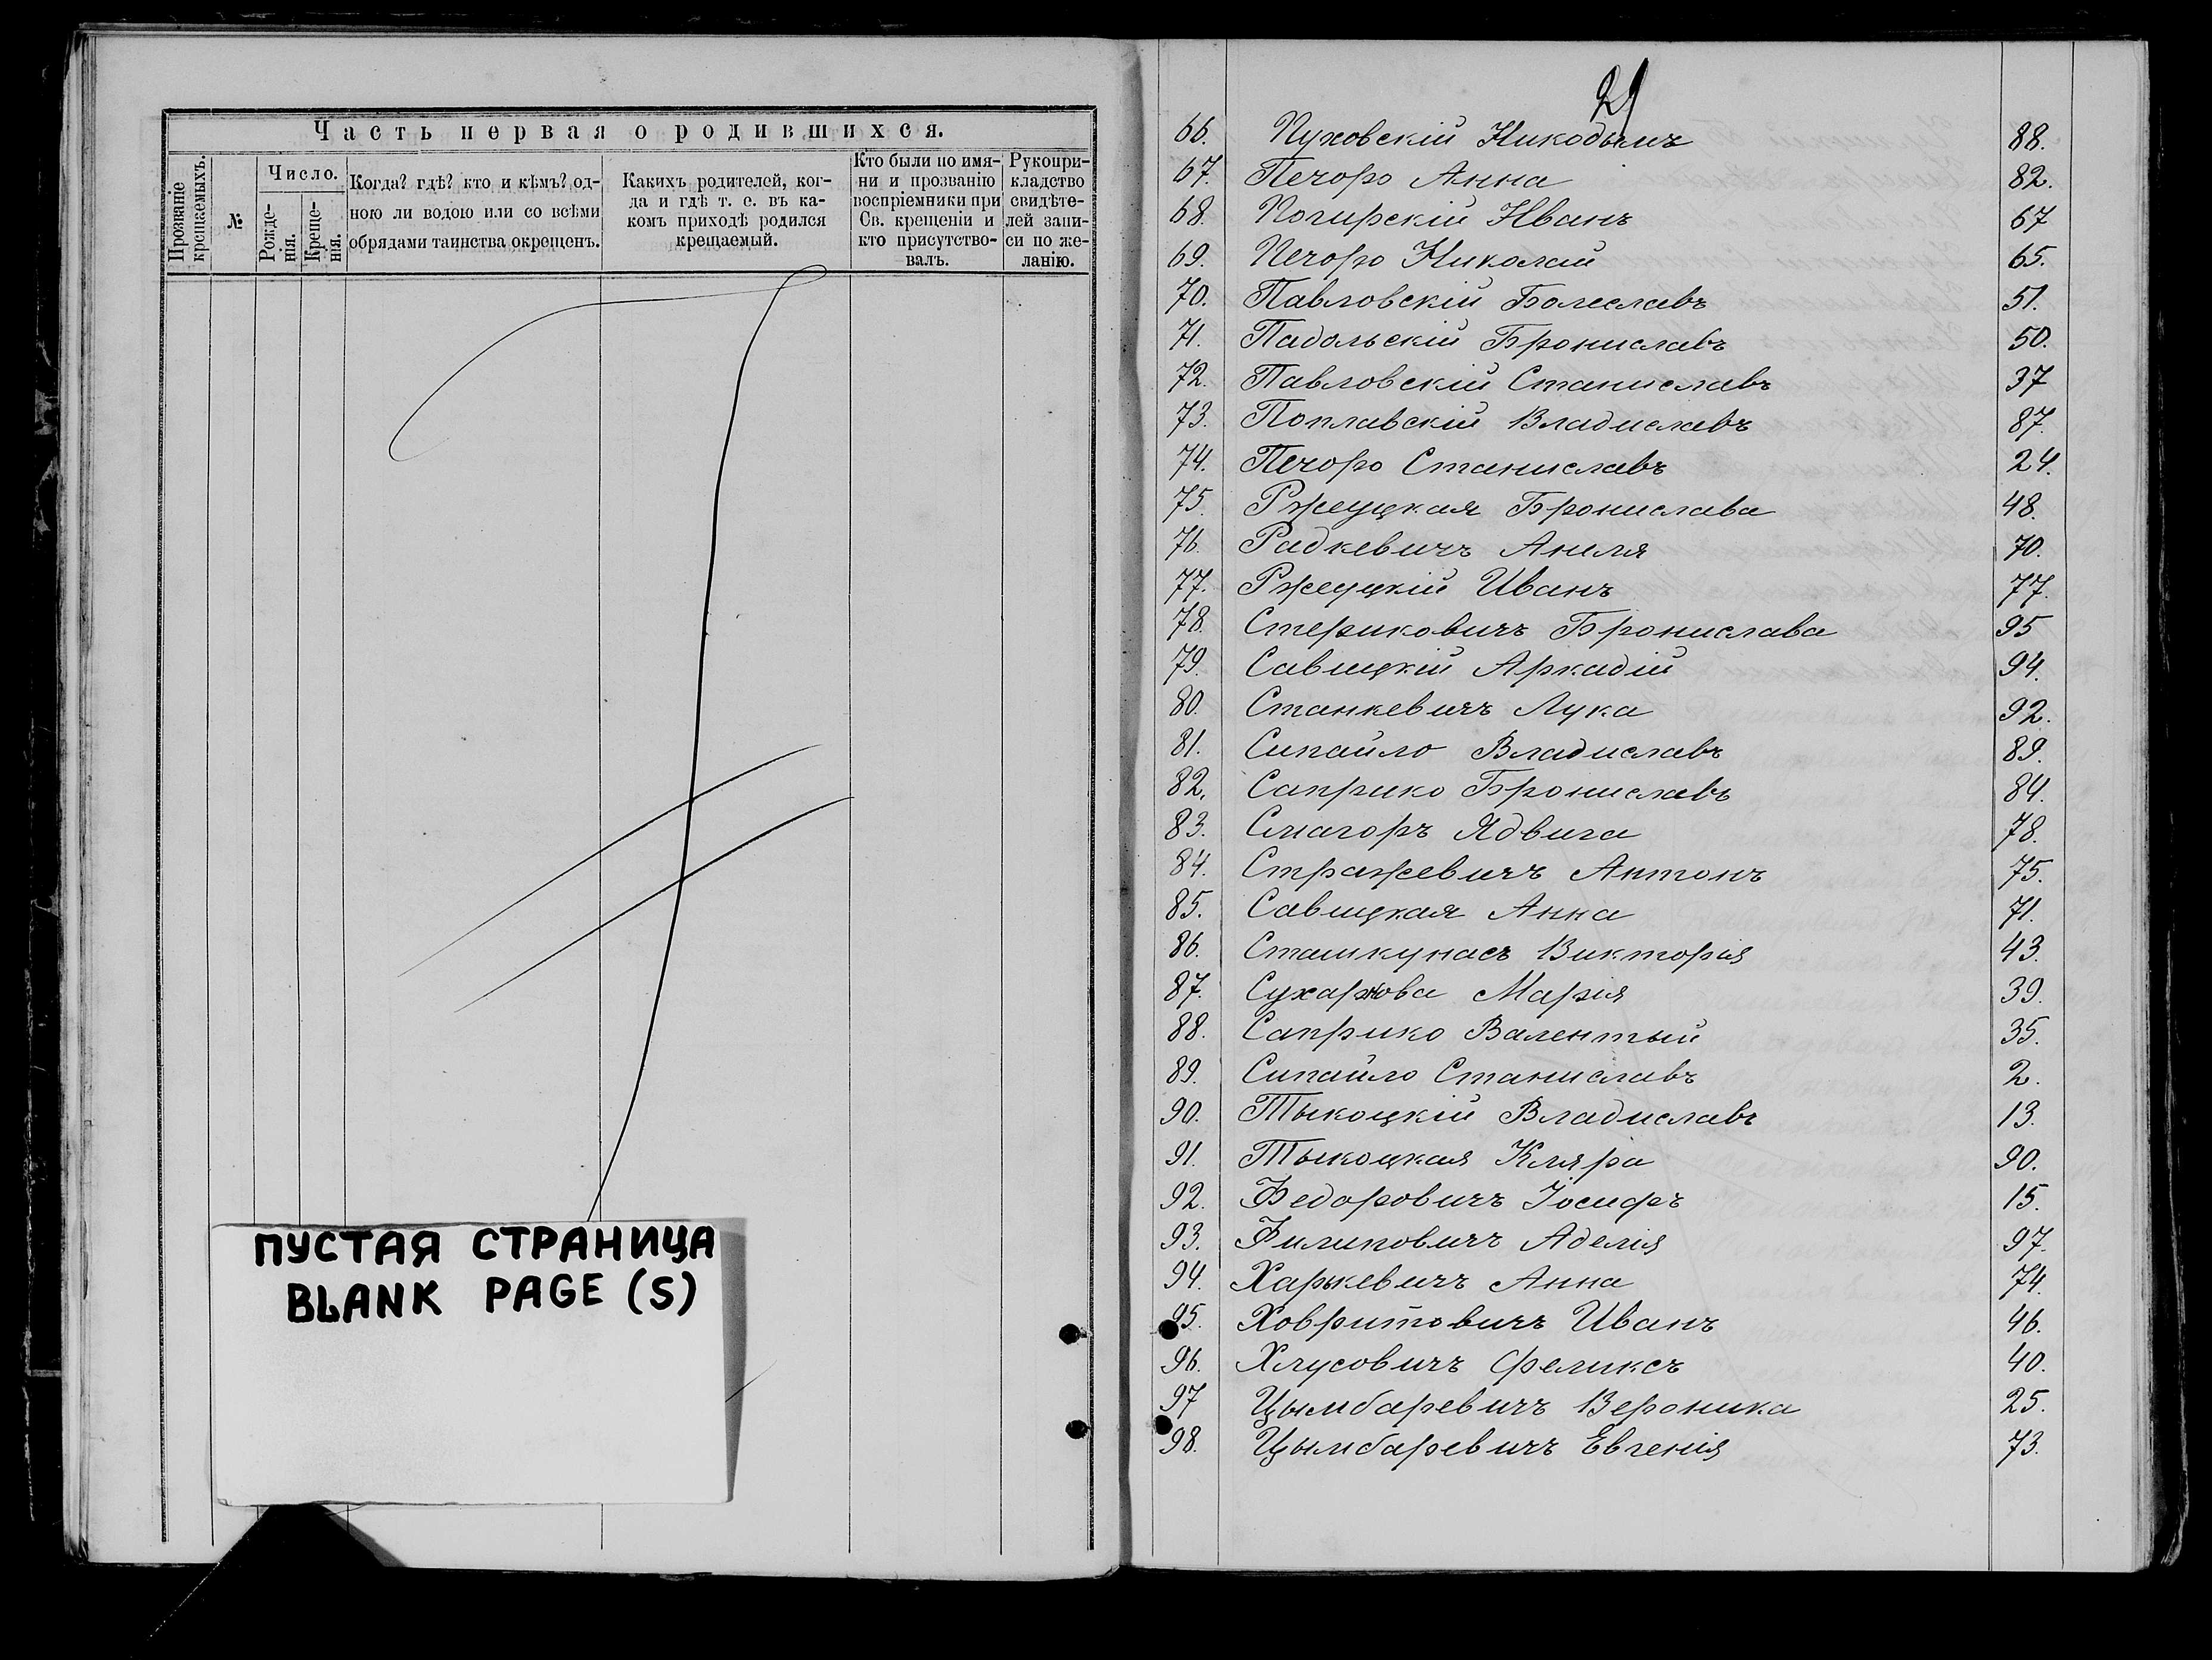 Часть первая о родившихся.
Прозваніе крещаемыхъ.
№
Число.
Рожде-
нія.
Креще-
нія.
Когда? гдѣ? кто и кѣмъ? од-
ною ли водою или со всѣми
обрядами таинства окрещенъ.
Какихъ родителей, ког-
да и гдѣ т. е. въ ка-
комъ приходѣ родился
крещаемый.
Кто были по имя-
ни и прозванію
воспріемники при
Св. крещеніи и
кто присутство-
валъ.
Рукопри-
кладство
свидѣте-
лей запи-
си по же-
ланію.
ПУСТАЯ СТРАНИЦА
BLANK PAGE (S)
29
66. Пуховскій Никодымъ 88.
67. Печоро Анна 82.
68. Погирскій Иванъ 67
69. Печоро Николай 65.
70. Павловскій Болеславъ 51.
71. Падольскій Брониславъ 50.
72. Павловскій Станиславъ 37
73. Поплавскій Владиславъ 87.
74. Печоро Станиславъ 24.
75. Ржеуцкая Бронислава 48.
76. Радкевичъ Анеля 70.
77. Ржеуцкій Иванъ 77.
78. Стериковичъ Бронислава 95
79. Савицкій Аркадій 94.
80. Станкевичъ Лука 92.
81. Сипайло Владиславъ 89.
82. Саприко Брониславъ 84.
83. Смагоръ Ядвига 78.
84. Стражевичъ Антонъ 75.
85. Савицкая Анна 71.
86. Сташкунасъ Викторія 43.
87. Марія 39.
88. Саприко Валентый 35.
89. Сипайло Станиславъ 2.
90. Тыкоцкій Владиславъ 13.
91. Тыкоцкая Кляра 90.
92. Федоровичъ Іосифъ 15.
93. Филиповичъ Аделія 97.
94. Харькевичъ Анна 74.
95. Иванъ 46.
96. Хлусовичъ Феликсъ 40.
97 Цымбаревичъ Вероника 25.
98. Цымбаревичъ Евгенія 73.